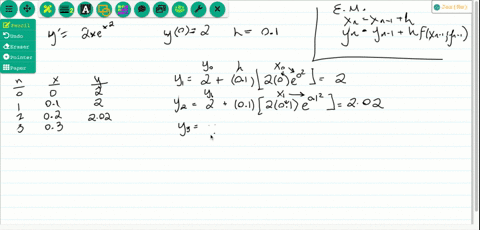 Pencil
Undo
Eraser
Pointer
Paper
y' = 2xe^{x^2} y(0) = 2 h = 0.1
E. M.
x_n = x_{n-1} + h
y_n = y_{n-1} + h f(x_{n-1}, y_{n-1})
n x y
0 0 2
1 0.1 2
2 0.2 2.02
3 0.3
y_0 h x_0
y_1 = 2 + (0.1) [2(0)e^{0^2}] = 2
y_1 x_1
y_2 = 2 + (0.1) [2(0.1) e^{0.1^2}] = 2.02
y_3 = ...